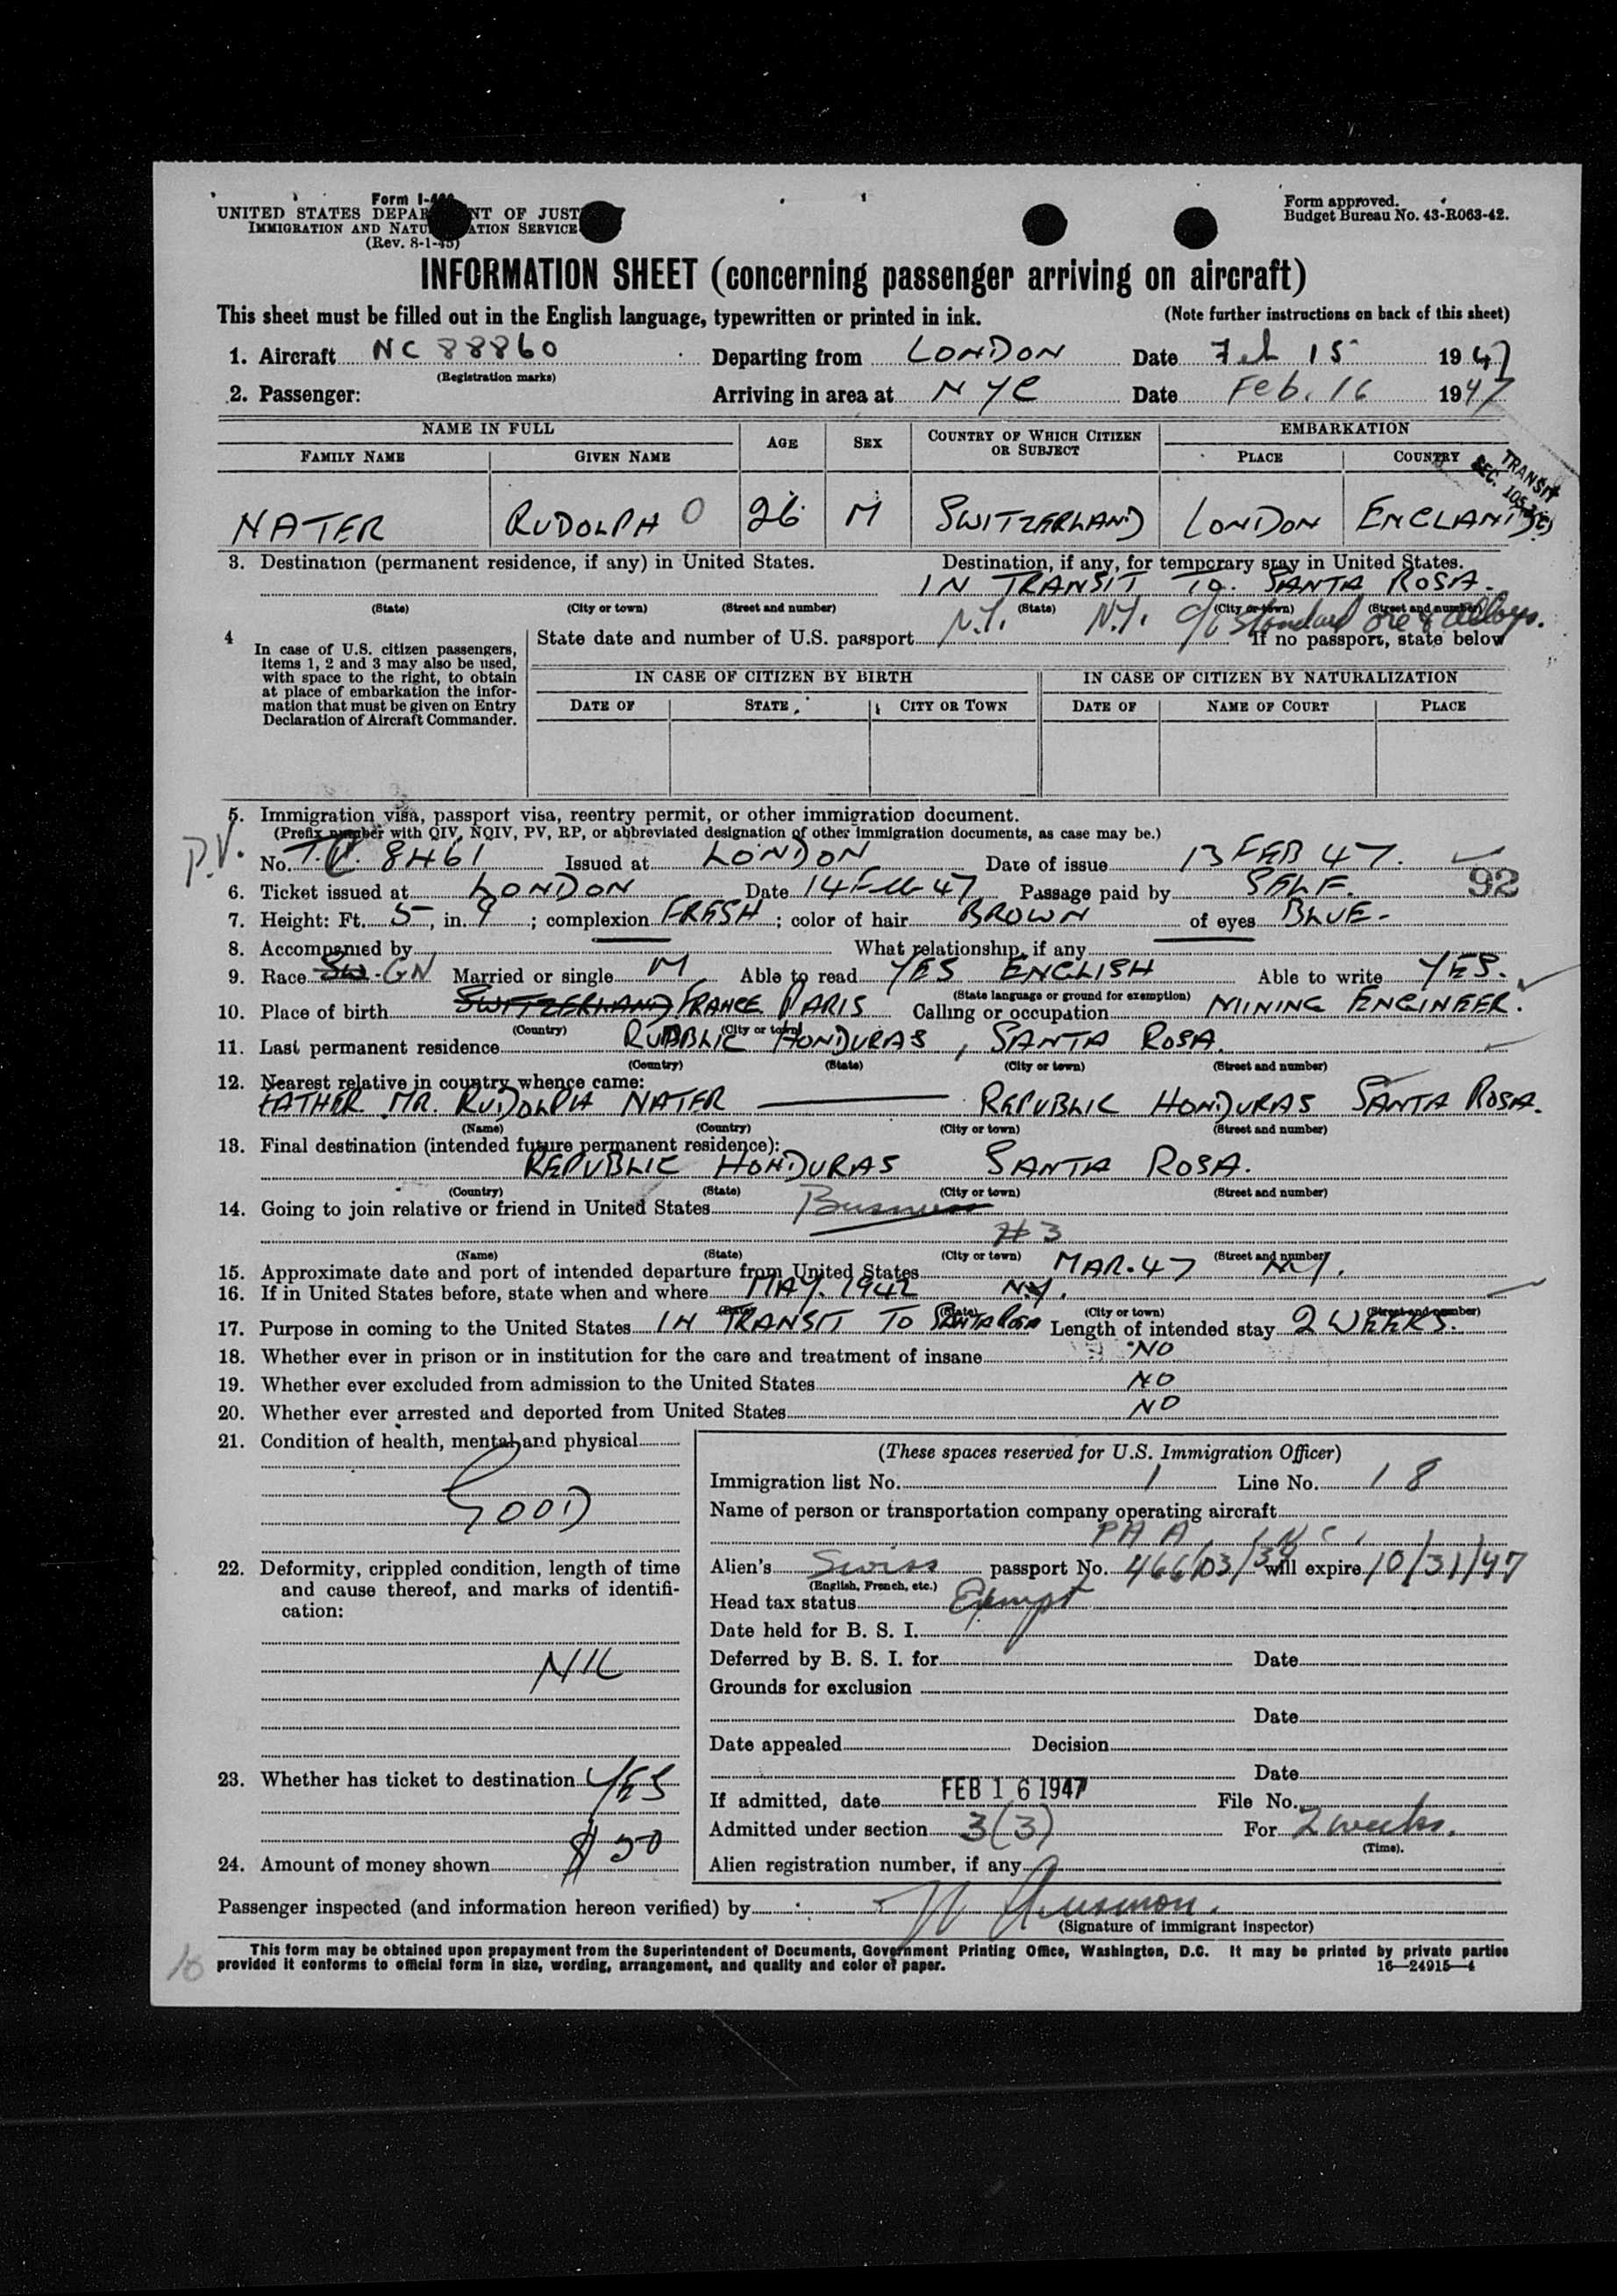 Form I-
UNITED STATES DEPA NT OF JUST
IMMIGRATION AND NATU ATION SERVICE
(Rev. 8-1-45)
Form approved.
Budget Bureau No. 43-R063-42.
INFORMATION SHEET (concerning passenger arriving on aircraft)
This sheet must be filled out in the English language, typewritten or printed in ink. (Note further instructions on back of this sheet)
1. Aircraft NC 88860 Departing from LONDON Date Feb 15 1947
(Registration marks)
2. Passenger: Arriving in area at NYC Date Feb. 16 1947
NAME IN FULL AGE SEX COUNTRY OF WHICH CITIZEN OR SUBJECT EMBARKATION
FAMILY NAME GIVEN NAME PLACE COUNTRY
TRANSIT
SEC. 105.3(c)
NATER RUDOLPH O 26 M SWITZERLAND LONDON ENGLAND
3. Destination (permanent residence, if any) in United States. Destination, if any, for temporary stay in United States.
IN TRANSIT TO SANTA ROSA.
(State) (City or town) (Street and number) (State) (City or town) (Street and number)
N.Y. N.Y. c/o Standard Ore & Alloys.
4 In case of U.S. citizen passengers, items 1, 2 and 3 may also be used, with space to the right, to obtain at place of embarkation the information that must be given on Entry Declaration of Aircraft Commander.
State date and number of U.S. passport If no passport, state below
IN CASE OF CITIZEN BY BIRTH IN CASE OF CITIZEN BY NATURALIZATION
DATE OF STATE CITY OR TOWN DATE OF NAME OF COURT PLACE
5. Immigration visa, passport visa, reentry permit, or other immigration document.
(Prefix number with QIV, NQIV, PV, RP, or abbreviated designation of other immigration documents, as case may be.)
P.V. No. T.C. 8461 Issued at LONDON Date of issue 13 FEB 47.
6. Ticket issued at LONDON Date 14 Feb 47 Passage paid by SELF. 92
7. Height: Ft. 5, in. 9; complexion FRESH; color of hair BROWN of eyes BLUE-
8. Accompanied by What relationship, if any
9. Race SW. GN Married or single M Able to read YES ENGLISH Able to write YES.
(State language or ground for exemption)
10. Place of birth SWITZERLAND FRANCE PARIS Calling or occupation MINING ENGINEER.
(Country) (City or town)
11. Last permanent residence RUPBLIC HONDURAS, SANTA ROSA.
(Country) (State) (City or town) (Street and number)
12. Nearest relative in country whence came:
FATHER MR. RUDOLPH NATER REPUBLIC HONDURAS SANTA ROSA.
(Name) (Country) (City or town) (Street and number)
13. Final destination (intended future permanent residence):
REPUBLIC HONDURAS SANTA ROSA.
(Country) (State) (City or town) (Street and number)
14. Going to join relative or friend in United States Business
#3
(Name) (State) (City or town) (Street and number)
15. Approximate date and port of intended departure from United States MAR. 47 N.Y.
16. If in United States before, state when and where MAY. 1942 N.Y.
(Date) (State) (City or town) (Street and number)
17. Purpose in coming to the United States IN TRANSIT TO SANTA ROSA Length of intended stay 2 WEEKS.
18. Whether ever in prison or in institution for the care and treatment of insane NO
19. Whether ever excluded from admission to the United States NO
20. Whether ever arrested and deported from United States NO
21. Condition of health, mental and physical
GOOD
22. Deformity, crippled condition, length of time and cause thereof, and marks of identification:
NIL
23. Whether has ticket to destination YES
24. Amount of money shown $ 50
(These spaces reserved for U.S. Immigration Officer)
Immigration list No. 1 Line No. 18
Name of person or transportation company operating aircraft
PAA INC.
Alien's Swiss passport No. 466103/34 will expire 10/31/47
(English, French, etc.)
Head tax status Exempt
Date held for B. S. I.
Deferred by B. S. I. for Date
Grounds for exclusion
Date
Date appealed Decision
Date
If admitted, date FEB 16 1947 File No.
Admitted under section 3(3) For 2 weeks.
(Time).
Alien registration number, if any
Passenger inspected (and information hereon verified) by
(Signature of immigrant inspector)
This form may be obtained upon prepayment from the Superintendent of Documents, Government Printing Office, Washington, D.C. It may be printed by private parties
provided it conforms to official form in size, wording, arrangement, and quality and color of paper. 16—24915—4